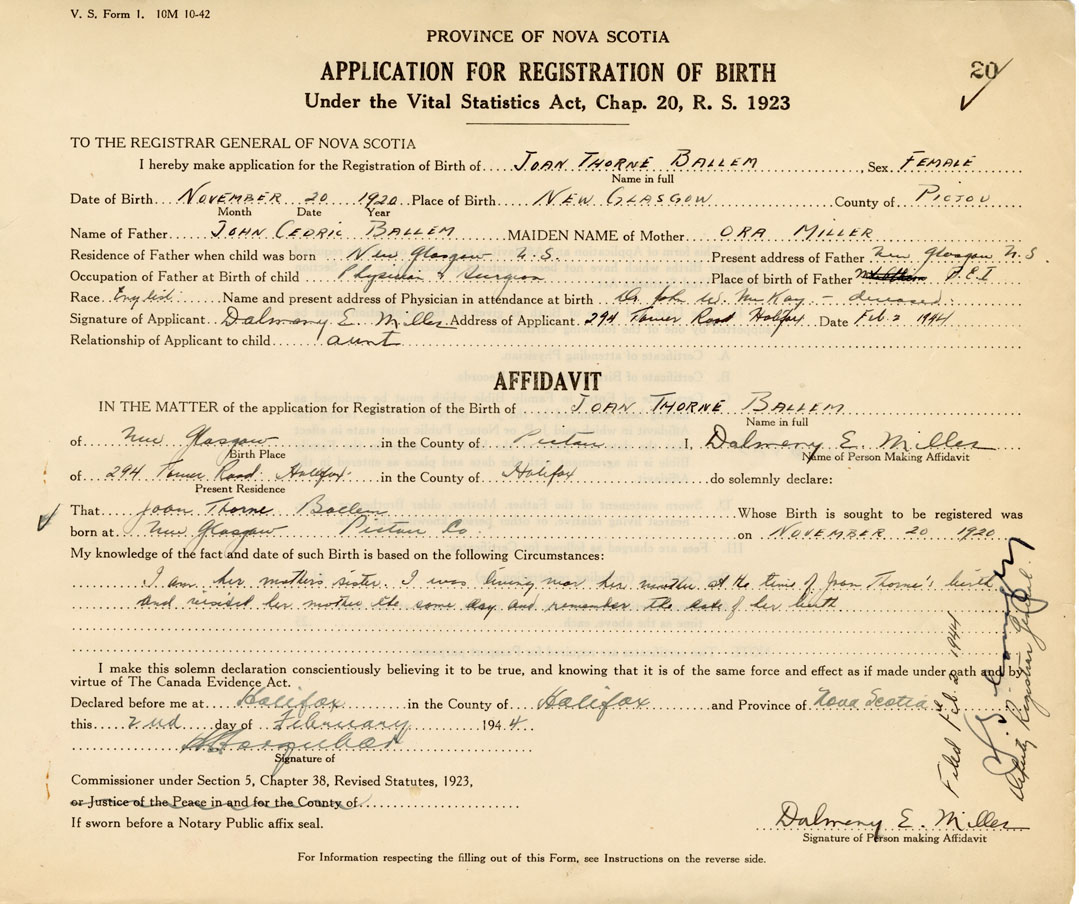 V. S. Form 1. 10M 10-42
PROVINCE OF NOVA SCOTIA
20
APPLICATION FOR REGISTRATION OF BIRTH
Under the Vital Statistics Act, Chap. 20, R. S. 1923
TO THE REGISTRAR GENERAL OF NOVA SCOTIA
I hereby make application for the Registration of Birth of JOAN THORNE BALLEM, Sex FEMALE
Name in full
Date of Birth NOVEMBER 20 1920 Place of Birth NEW GLASGOW County of PICTOU
Month Date Year
Name of Father JOHN CEDRIC BALLEM MAIDEN NAME of Mother ORA MILLER
Residence of Father when child was born New Glasgow N.S. Present address of Father New Glasgow N.S.
Occupation of Father at Birth of child Physician & Surgeon Place of birth of Father P.E.I
Race English Name and present address of Physician in attendance at birth Dr John W. McKay - deceased.
Signature of Applicant Dalmeny E. Miller Address of Applicant 294 Tower Road Halifax Date Feb. 2 1944
Relationship of Applicant to child aunt
AFFIDAVIT
IN THE MATTER of the application for Registration of the Birth of JOAN THORNE BALLEM
Name in full
of New Glasgow in the County of Pictou I, Dalmeny E. Miller
Birth Place Name of Person Making Affidavit
of 294 Tower Road Halifax in the County of Halifax do solemnly declare:
Present Residence
That Joan Thorne Ballem Whose Birth is sought to be registered was
born at New Glasgow Pictou Co. on NOVEMBER 20 1920
My knowledge of the fact and date of such Birth is based on the following Circumstances:
I am her mother's sister. I was living near her mother at the time of Joan Thorne's birth
and visited her mother the same day and remember the date of her birth
I make this solemn declaration conscientiously believing it to be true, and knowing that it is of the same force and effect as if made under oath and by
virtue of The Canada Evidence Act.
Declared before me at Halifax in the County of Halifax and Province of Nova Scotia
this 2nd day of February 1944
Signature of
Commissioner under Section 5, Chapter 38, Revised Statutes, 1923,
or Justice of the Peace in and for the County of
If sworn before a Notary Public affix seal.
Dalmeny E. Miller
Signature of Person making Affidavit
For Information respecting the filling out of this Form, see Instructions on the reverse side.
Filed Feb. 2 1944
Deputy Registrar General